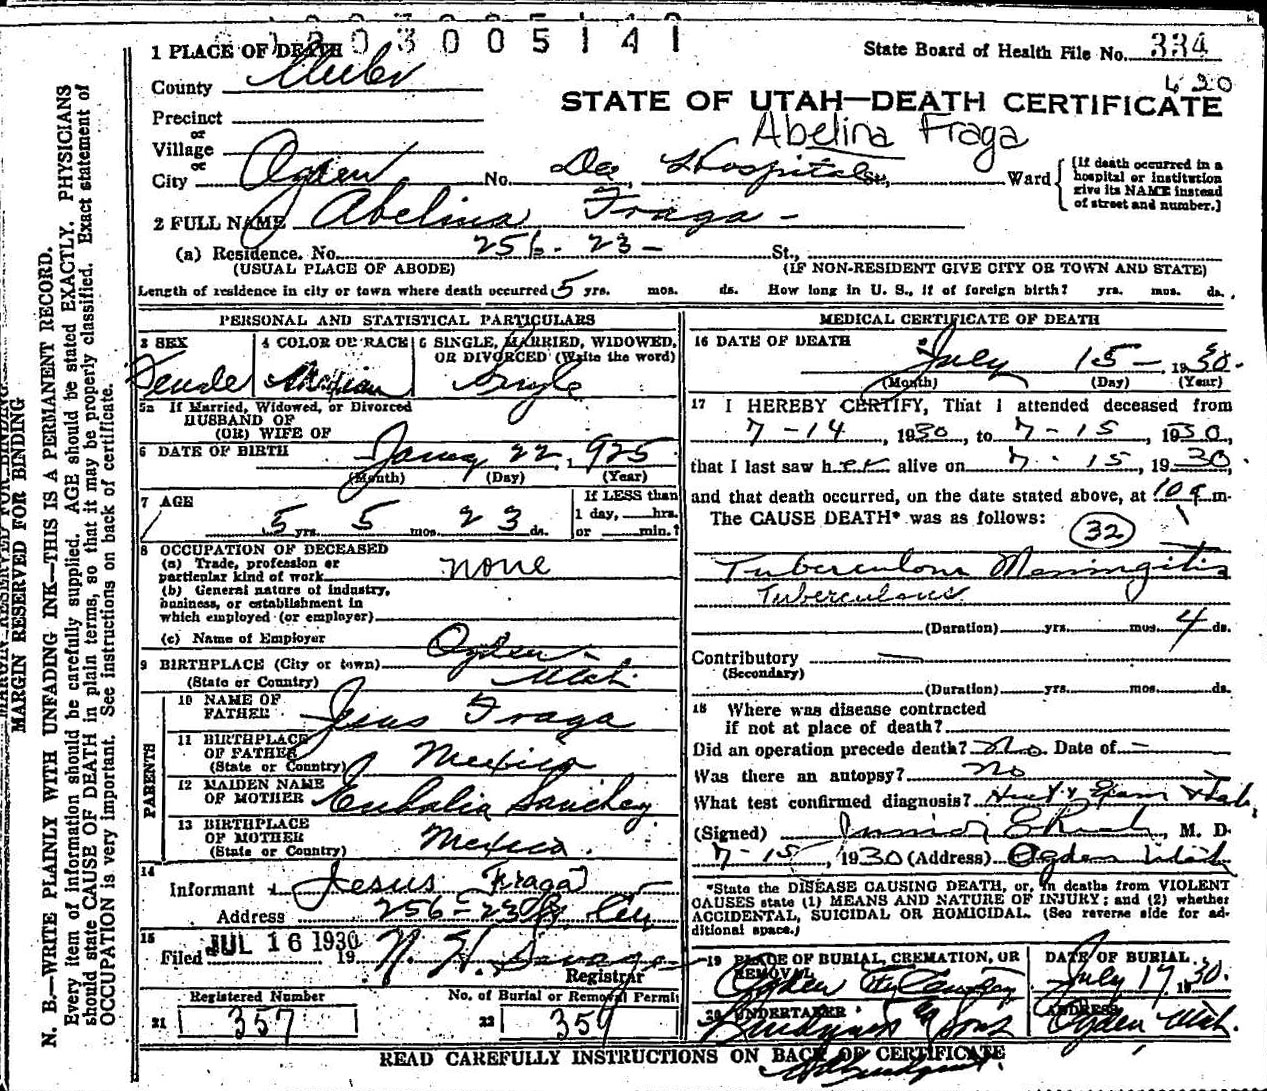 1203005141
1 PLACE OF DEATH
State Board of Health File No. 334
County Weber
420
STATE OF UTAH—DEATH CERTIFICATE
Precinct
or
Abelina Fraga
Village
or
City Ogden No. Dee Hospital St., Ward
[If death occurred in a
hospital or institution
give its NAME instead
of street and number.]
2 FULL NAME Abelina Fraga -
(a) Residence. No. 256 - 23 - St.,
(USUAL PLACE OF ABODE) (IF NON-RESIDENT GIVE CITY OR TOWN AND STATE)
Length of residence in city or town where death occurred 5 yrs. mos. ds. How long in U. S., if of foreign birth? yrs. mos. ds.
PERSONAL AND STATISTICAL PARTICULARS
3 SEX
Female
4 COLOR OR RACE
Mexican
5 SINGLE, MARRIED, WIDOWED,
OR DIVORCED (Write the word)
Single
5a If Married, Widowed, or Divorced
HUSBAND OF
(OR) WIFE OF
6 DATE OF BIRTH Jany 22, 1925
(Month) (Day) (Year)
7 AGE
5 yrs. 5 mos. 23 ds.
If LESS than
1 day, hrs.
or min.?
8 OCCUPATION OF DECEASED
(a) Trade, profession or
particular kind of work none
(b) General nature of industry,
business, or establishment in
which employed (or employer)
(c) Name of Employer
9 BIRTHPLACE (City or town) Ogden -
(State or Country) Utah.
PARENTS
10 NAME OF
FATHER Jesus Fraga
11 BIRTHPLACE
OF FATHER
(State or Country) Mexico
12 MAIDEN NAME
OF MOTHER Eubalia Sanchez
13 BIRTHPLACE
OF MOTHER
(State or Country) Mexico.
14
Informant Jesus Fraga
Address 256 - 23 St. City
15
Filed JUL 16 1930 19 N. H. Savage
Registrar
Registered Number
21 357
No. of Burial or Removal Permit
22 359
MEDICAL CERTIFICATE OF DEATH
16 DATE OF DEATH
July 15 - 1930.
(Month) (Day) (Year)
17 I HEREBY CERTIFY, That I attended deceased from
7 - 14, 1930, to 7 - 15, 1930,
that I last saw her alive on 7 - 15, 1930,
and that death occurred, on the date stated above, at 10 a m.
The CAUSE DEATH* was as follows:
32
Tuberculous Meningitis
Tuberculous
(Duration) yrs. mos. 4 ds.
Contributory
(Secondary)
(Duration) yrs. mos. ds.
18 Where was disease contracted
if not at place of death?
Did an operation precede death? No. Date of -
Was there an autopsy? No
What test confirmed diagnosis? Hist & Exam & Lab,
(Signed) M. D.
7 - 15, 1930 (Address) Ogden Utah
*State the DISEASE CAUSING DEATH, or, in deaths from VIOLENT
CAUSES state (1) MEANS AND NATURE OF INJURY; and (2) whether
ACCIDENTAL, SUICIDAL OR HOMICIDAL. (See reverse side for ad-
ditional space.)
19 PLACE OF BURIAL, CREMATION, OR
REMOVAL
Ogden City Cemetery
DATE OF BURIAL
July 17 1930.
20 UNDERTAKER
Lindquist & Sons
ADDRESS
Ogden Utah.
READ CAREFULLY INSTRUCTIONS ON BACK OF CERTIFICATE
MARGIN RESERVED FOR BINDING
MARGIN RESERVED FOR BINDING
N. B.—WRITE PLAINLY WITH UNFADING INK—THIS IS A PERMANENT RECORD.
Every item of information should be carefully supplied. AGE should be stated EXACTLY. PHYSICIANS
should state CAUSE OF DEATH in plain terms, so that it may be properly classified. Exact statement of
OCCUPATION is very important. See instructions on back of certificate.